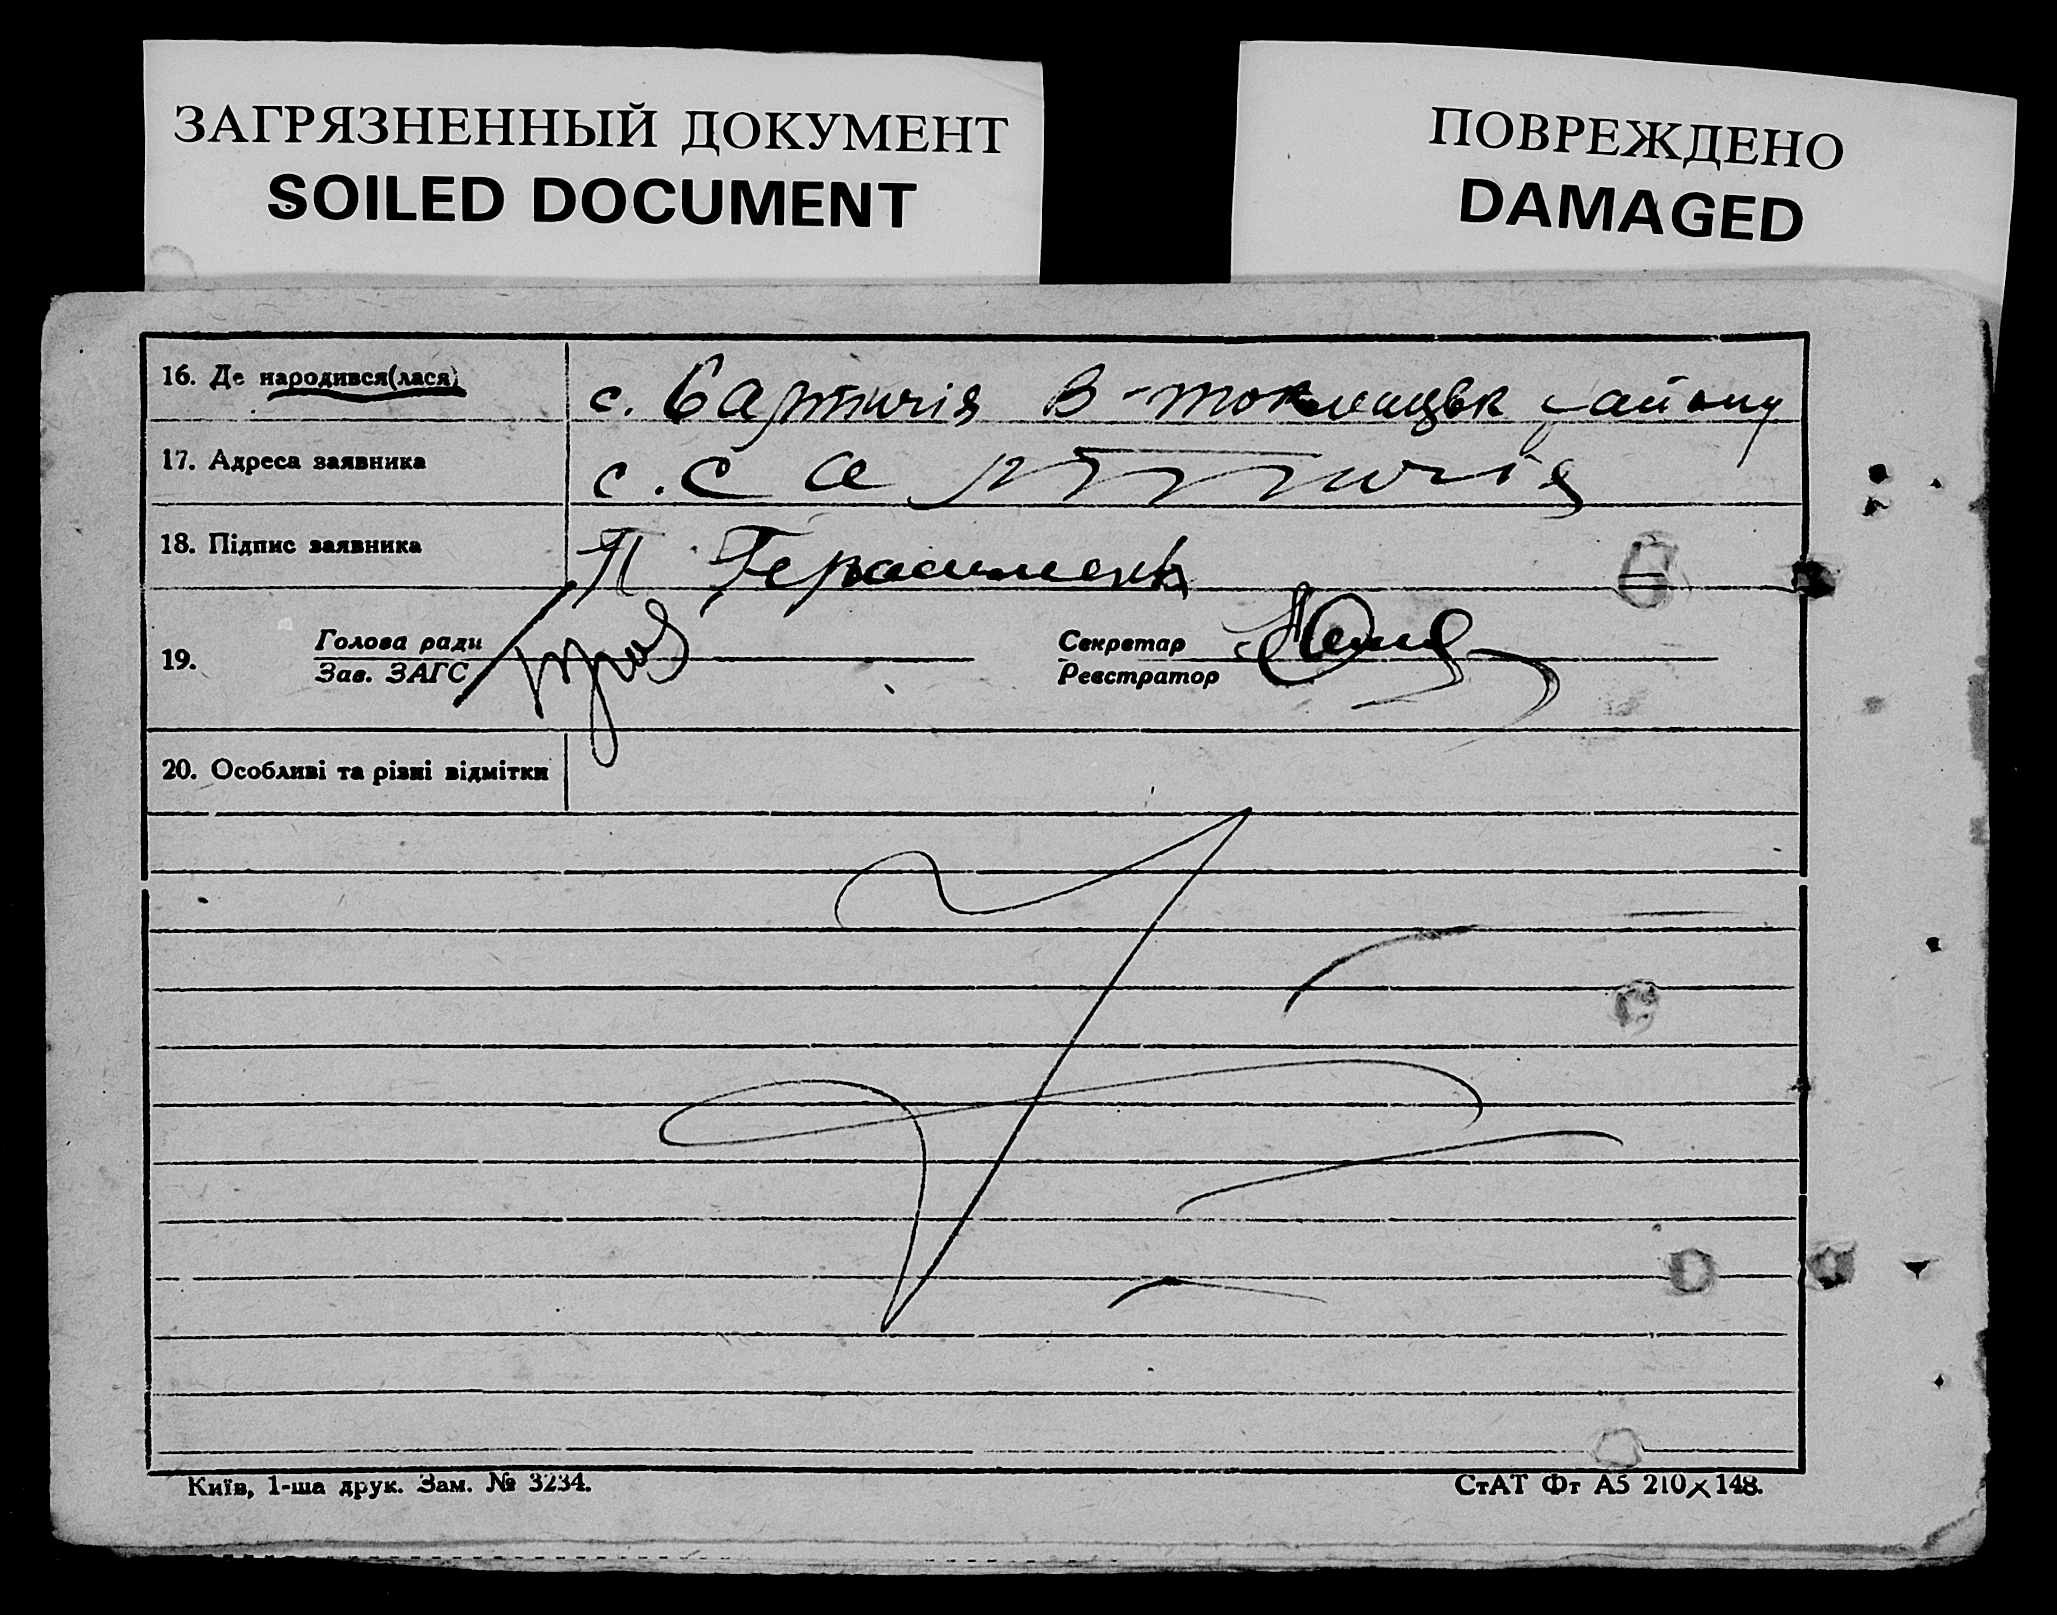 ЗАГРЯЗНЕННЫЙ ДОКУМЕНТ
SOILED DOCUMENT
ПОВРЕЖДЕНО
DAMAGED
16. Де народився(лася) с. Сартичія В-токмацьк району
17. Адреса заявника с. Сартичія
18. Підпис заявника П Герасименко
19. Голова ради
Зав. ЗАГС
Секретар
Реєстратор
20. Особливі та різні відмітки
Київ, 1-ша друк. Зам. № 3234.
СтАТ Фт А5 210×148.